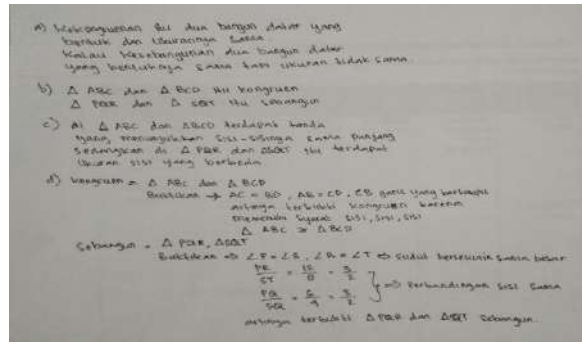 a) Kekongruenan itu dua bangun datar yang
bentuk dan ukurannya sama
Kalau kesebangunan dua bangun datar
yang bentuknya sama tapi ukuran tidak sama.
b) Δ ABC dan Δ BCD itu kongruen
Δ PQR dan Δ SQT itu sebangun
c) di Δ ABC dan ΔBCD terdapat tanda
yang menunjukkan sisi-sisinya sama panjang
sedangkan di Δ PQR dan ΔSQT itu terdapat
ukuran sisi yang berbeda
d) kongruen = Δ ABC dan Δ BCD
Buktikan → AC = BD, AB = CD, CB garis yang
artinya terbukti kongruen karena
memenuhi syarat sisi, sisi, sisi
Δ ABC ≅ Δ BCD
Sebangun = Δ PQR, ΔSQT
Buktikan ⇒ ∠P = ∠S, ∠R = ∠T ⇒ sudut bersesuaian sama besar
PR/ST = 12/8 = 3/2
PQ/SQ = 6/4 = 3/2 } ⇒ Perbandingan sisi sama
artinya terbukti Δ PQR dan ΔSQT sebangun.